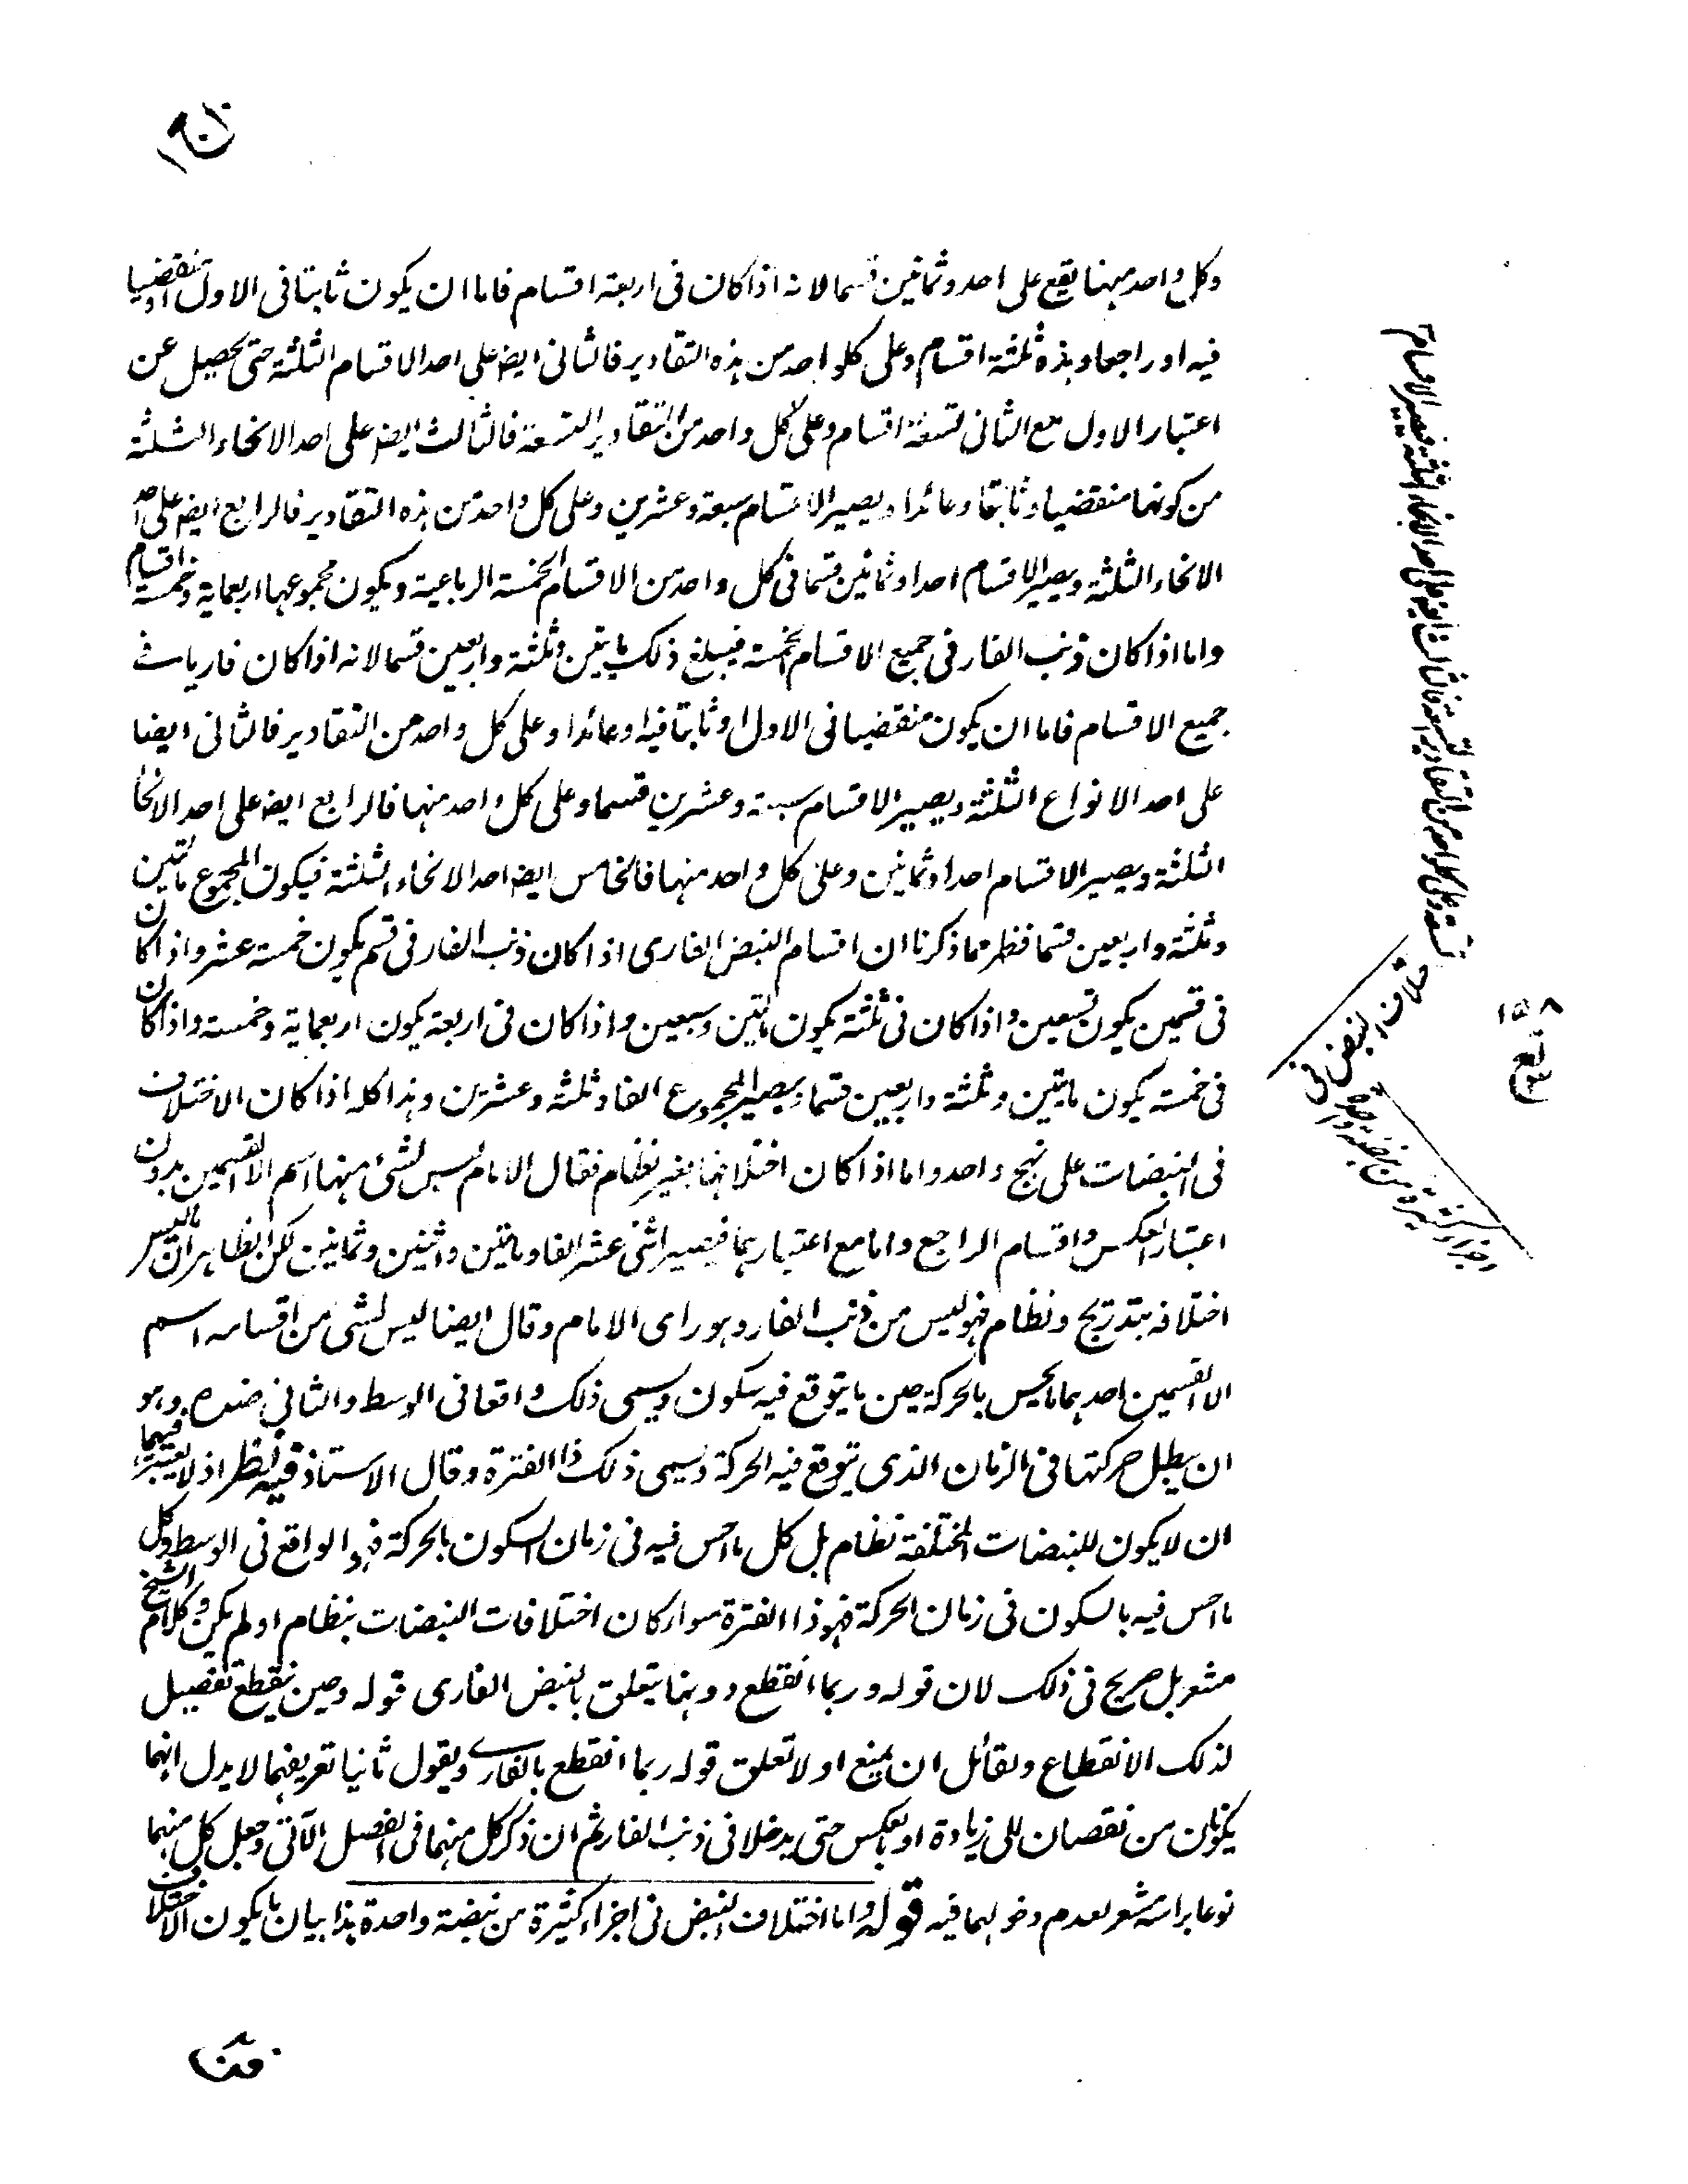 وكل واحد منها يقع على احد وثمانين قسما لانه اذا كان فى اربعة اقسام فاما ان يكون ثابتا فى الاول او منقضيا
فيه او راجعا وهذه ثلثة اقسام وعلى كل واحد من هذه التقادير فالثانى ايضا على احد الاقسام الثلثة حتى يحصل عن
اعتبار الاول مع الثانى تسعة اقسام وعلى كل واحد من التقادير التسعة فالثالث ايضا على احد الانحاء الثلثة
من كونها منقضيا وثابتا وعائدا ويصير الاقسام سبعة وعشرين وعلى كل واحد من هذه التقادير فالرابع ايضا على احد
الانحاء الثلثة ويصير الاقسام احدا وثمانين قسما فى كل واحد من الاقسام الخمسة الرباعية ويكون مجموعها اربعماية وخمسة اقسام
واما اذا كان ذنب الفار فى جميع الاقسام الخمسة فيبلغ ذلك مايتين وثلثة واربعين قسما لانه اذا كان فاريا فى
جميع الاقسام فاما ان يكون منقضيا فى الاول او ثابتا فيه او عائدا وعلى كل واحد من التقادير فالثانى ايضا
على احد الانواع الثلثة ويصير الاقسام سبعة وعشرين قسما وعلى كل واحد منها فالرابع ايضا على احد الانحا
الثلثة ويصير الاقسام احدا وثمانين وعلى كل واحد منها فالخامس ايضا احد الانحاء الثلثة فيكون المجموع مائتين
وثلثة واربعين قسما فظهر مما ذكرنا ان اقسام النبض الفارى اذا كان ذنب الفار فى قسم يكون خمسة عشر واذا كان
فى قسمين يكون تسعين واذا كان فى ثلثة يكون مائتين وسبعين واذا كان فى اربعة يكون اربعماية وخمسة واذا كان
فى خمسة يكون مائتين وثلثة واربعين قسما ويصير المجموع الفا وثلثة وعشرين وهذا كله اذا كان الاختلاف
فى النبضات على نهج واحد واما اذا كان اختلافها بغير نظام فقال الامام ليس لشئ منها اسم الا القسمين بدون
اعتبار العكس واقسام الراجع واما مع اعتبارهما فيصير اثنى عشر الفا ومائتين واثنين وثمانين لكن الظاهر ان ما ليس
اختلافه بتدريج ونظام فهو ليس من ذنب الفار وهو راى الامام وقال ايضا ليس لشى من اقسامه اسم
الا القسمين احدهما ما يحس بالحركة حين ما يتوقع فيه سكون ويسمى ذلك واقعا فى الوسط والثانى ضده وهو
ان يبطل حركتها فى الزمان الذى يتوقع فيه الحركة ويسمى ذلك ذا الفترة وقال الاستاذ فيه نظر اذ لا يعتبر فيهما
ان لا يكون للنبضات المختلفة نظام بل كل ما احس فيه فى زمان السكون بالحركة فهو الواقع فى الوسط وكل
ما احس فيه بالسكون فى زمان الحركة فهو ذا الفترة سواء كان اختلافات النبضات بنظام او لم يكن وكلام الشيخ
مشعر بل صريح فى ذلك لان قوله وربما انقطع دونها يتعلق بالنبض الفارى قوله وحين ينقطع تفصيل
لذلك الانقطاع ولقائل ان يمنع اولا تعلق قوله ربما انقطع بالفارى ويقول ثانيا تعريفهما لا يدل انهما
يكونان من نقصان الى زيادة او بالعكس حتى يدخلا فى ذنب الفار ثم ان ذكر كل منهما فى الفصل الآتى وجعل كل منهما
نوعا براسه مشعر لعدم دخولهما فيه قوله واما اختلاف النبض فى اجزاء كثيرة من نبضة واحدة هذا بيان ما يكون الاختلاف
تسعة وعلى كل واحد من التقادير التسعة فالثالث ايضا على احد الانحاء الثلثة فيصير الاقسام
١٥٨